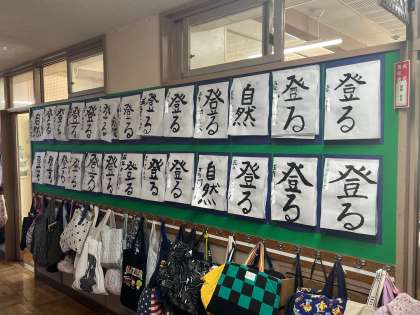 登る
登る
登る
登る
登る
登る
登る
登る
登る
登る
自然
登る
登る
登る
登る
登る
登る
登る
登る
登る
登る
自然
登る
登る
登る